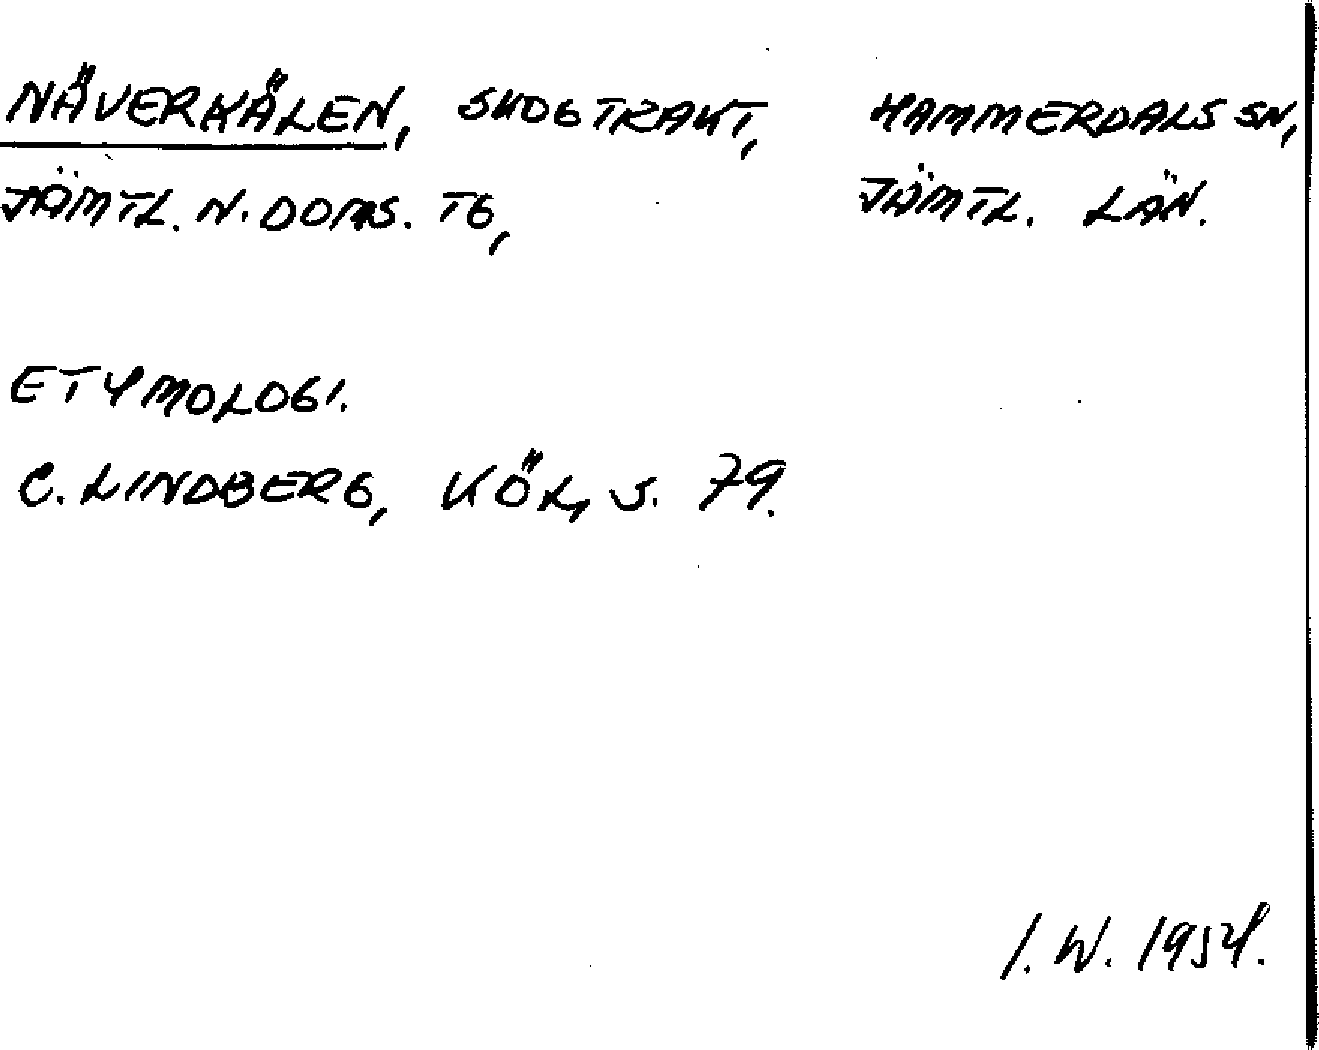 NÄVERKÄLEN, SKOGTRAKT, HAMMERDALS SN,
JÄMTL. N. DOMS. TG, JÄMTL. LÄN.
ETYMOLOGI.
C. LINDBERG, KÖL, S. 79.
I. W. 1954.